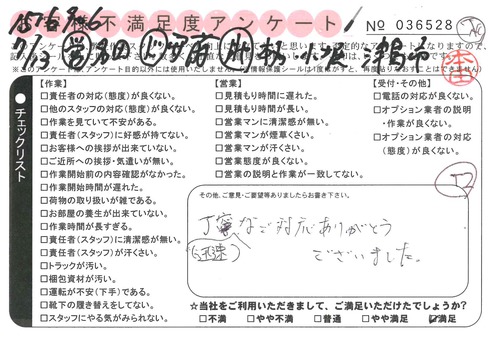 お客様不満足度アンケート
No 036528
【作業】
□責任者の対応(態度)が良くない。
□他のスタッフの対応(態度)が良くない。
□作業を見ていて不安がある。
□責任者(スタッフ)に好感が持てない。
□お客様への挨拶が出来ていない。
□ご近所への挨拶・気遣いが無い。
□作業開始前の内容確認がなかった。
□作業開始時間が遅れた。
□荷物の取り扱いが雑である。
□お部屋の養生が出来ていない。
□作業時間が長すぎる。
□責任者(スタッフ)に清潔感が無い。
□責任者(スタッフ)が汗くさい。
□トラックが汚い。
□梱包資材が汚い。
□運転が不安(下手)である。
□靴下の履き替えをしてない。
□スタッフにやる気がみられない。
【営業】
□見積もり時間に遅れた。
□見積もり時間が長い。
□営業マンに清潔感が無い。
□営業マンが煙草くさい。
□営業マンが汗くさい。
□営業態度が良くない。
□営業の説明と作業が一致してない。
【受付・その他】
□電話の対応が良くない。
□オプション業者の説明
・作業が良くない。
□オプション業者の対応
(態度)が良くない。
チェックリスト
その他、ご意見・ご要望等ありましたらお書き下さい。
丁寧なご対応ありがとう
迅速
ございました。
☆当社をご利用いただきまして、ご満足いただけたでしょうか?
□不満 □やや不満 □普通 □やや満足 ☑満足